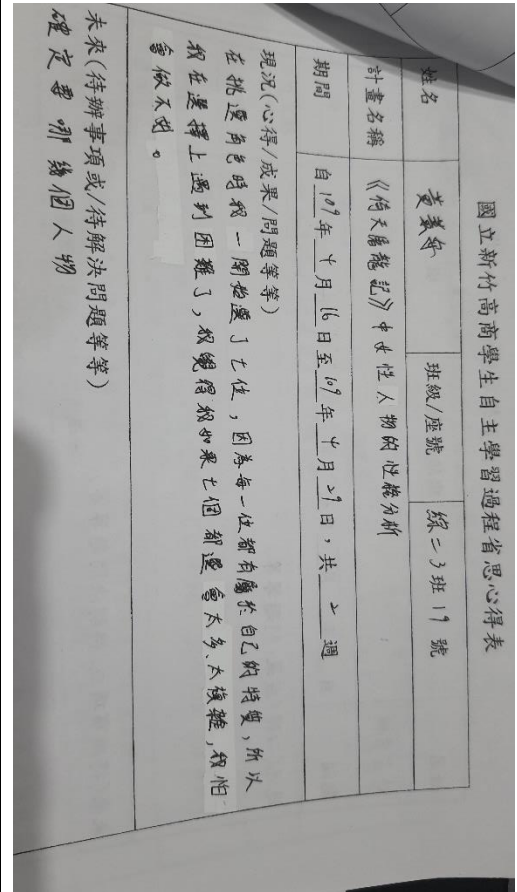 國立新竹高商學生自主學習過程省思心得表
姓名 黃 班級/座號 綜二3班19號
計畫名稱 《倚天屠龍記》中女性人物的性格分析
期間 自109年 月16日至109年 月29日，共2週
現況(心得/成果/問題等等)
在挑選角色時我一開始選了七位，因為每一位都有屬於自己的特質，所以
我在選擇上遇到困難了，我覺得我如果七個都選會太多、太複雜，我怕
會做不完。
未來(待辦事項或/待解決問題等等)
確定要哪幾個人物